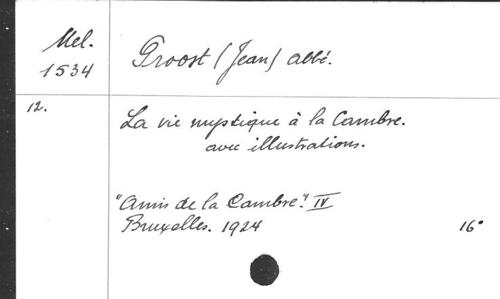 Mel.
1534
Groost (Jean) abbé.
12.
La vie mystique à la Cambre.
avec illustrations.
"Amis de la Cambre". IV
Bruxelles. 1924
16°